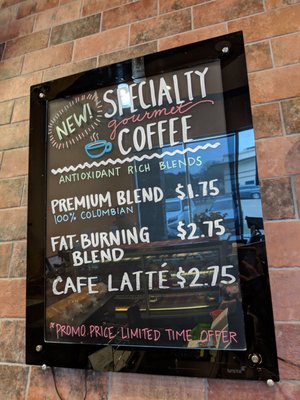 NEW!
SPECIALTY
gourmet
COFFEE
ANTIOXIDANT RICH BLENDS
PREMIUM BLEND $1.75
100% COLOMBIAN
FAT-BURNING BLEND $2.75
CAFE LATTÉ $2.75
*PROMO PRICE-LIMITED TIME OFFER